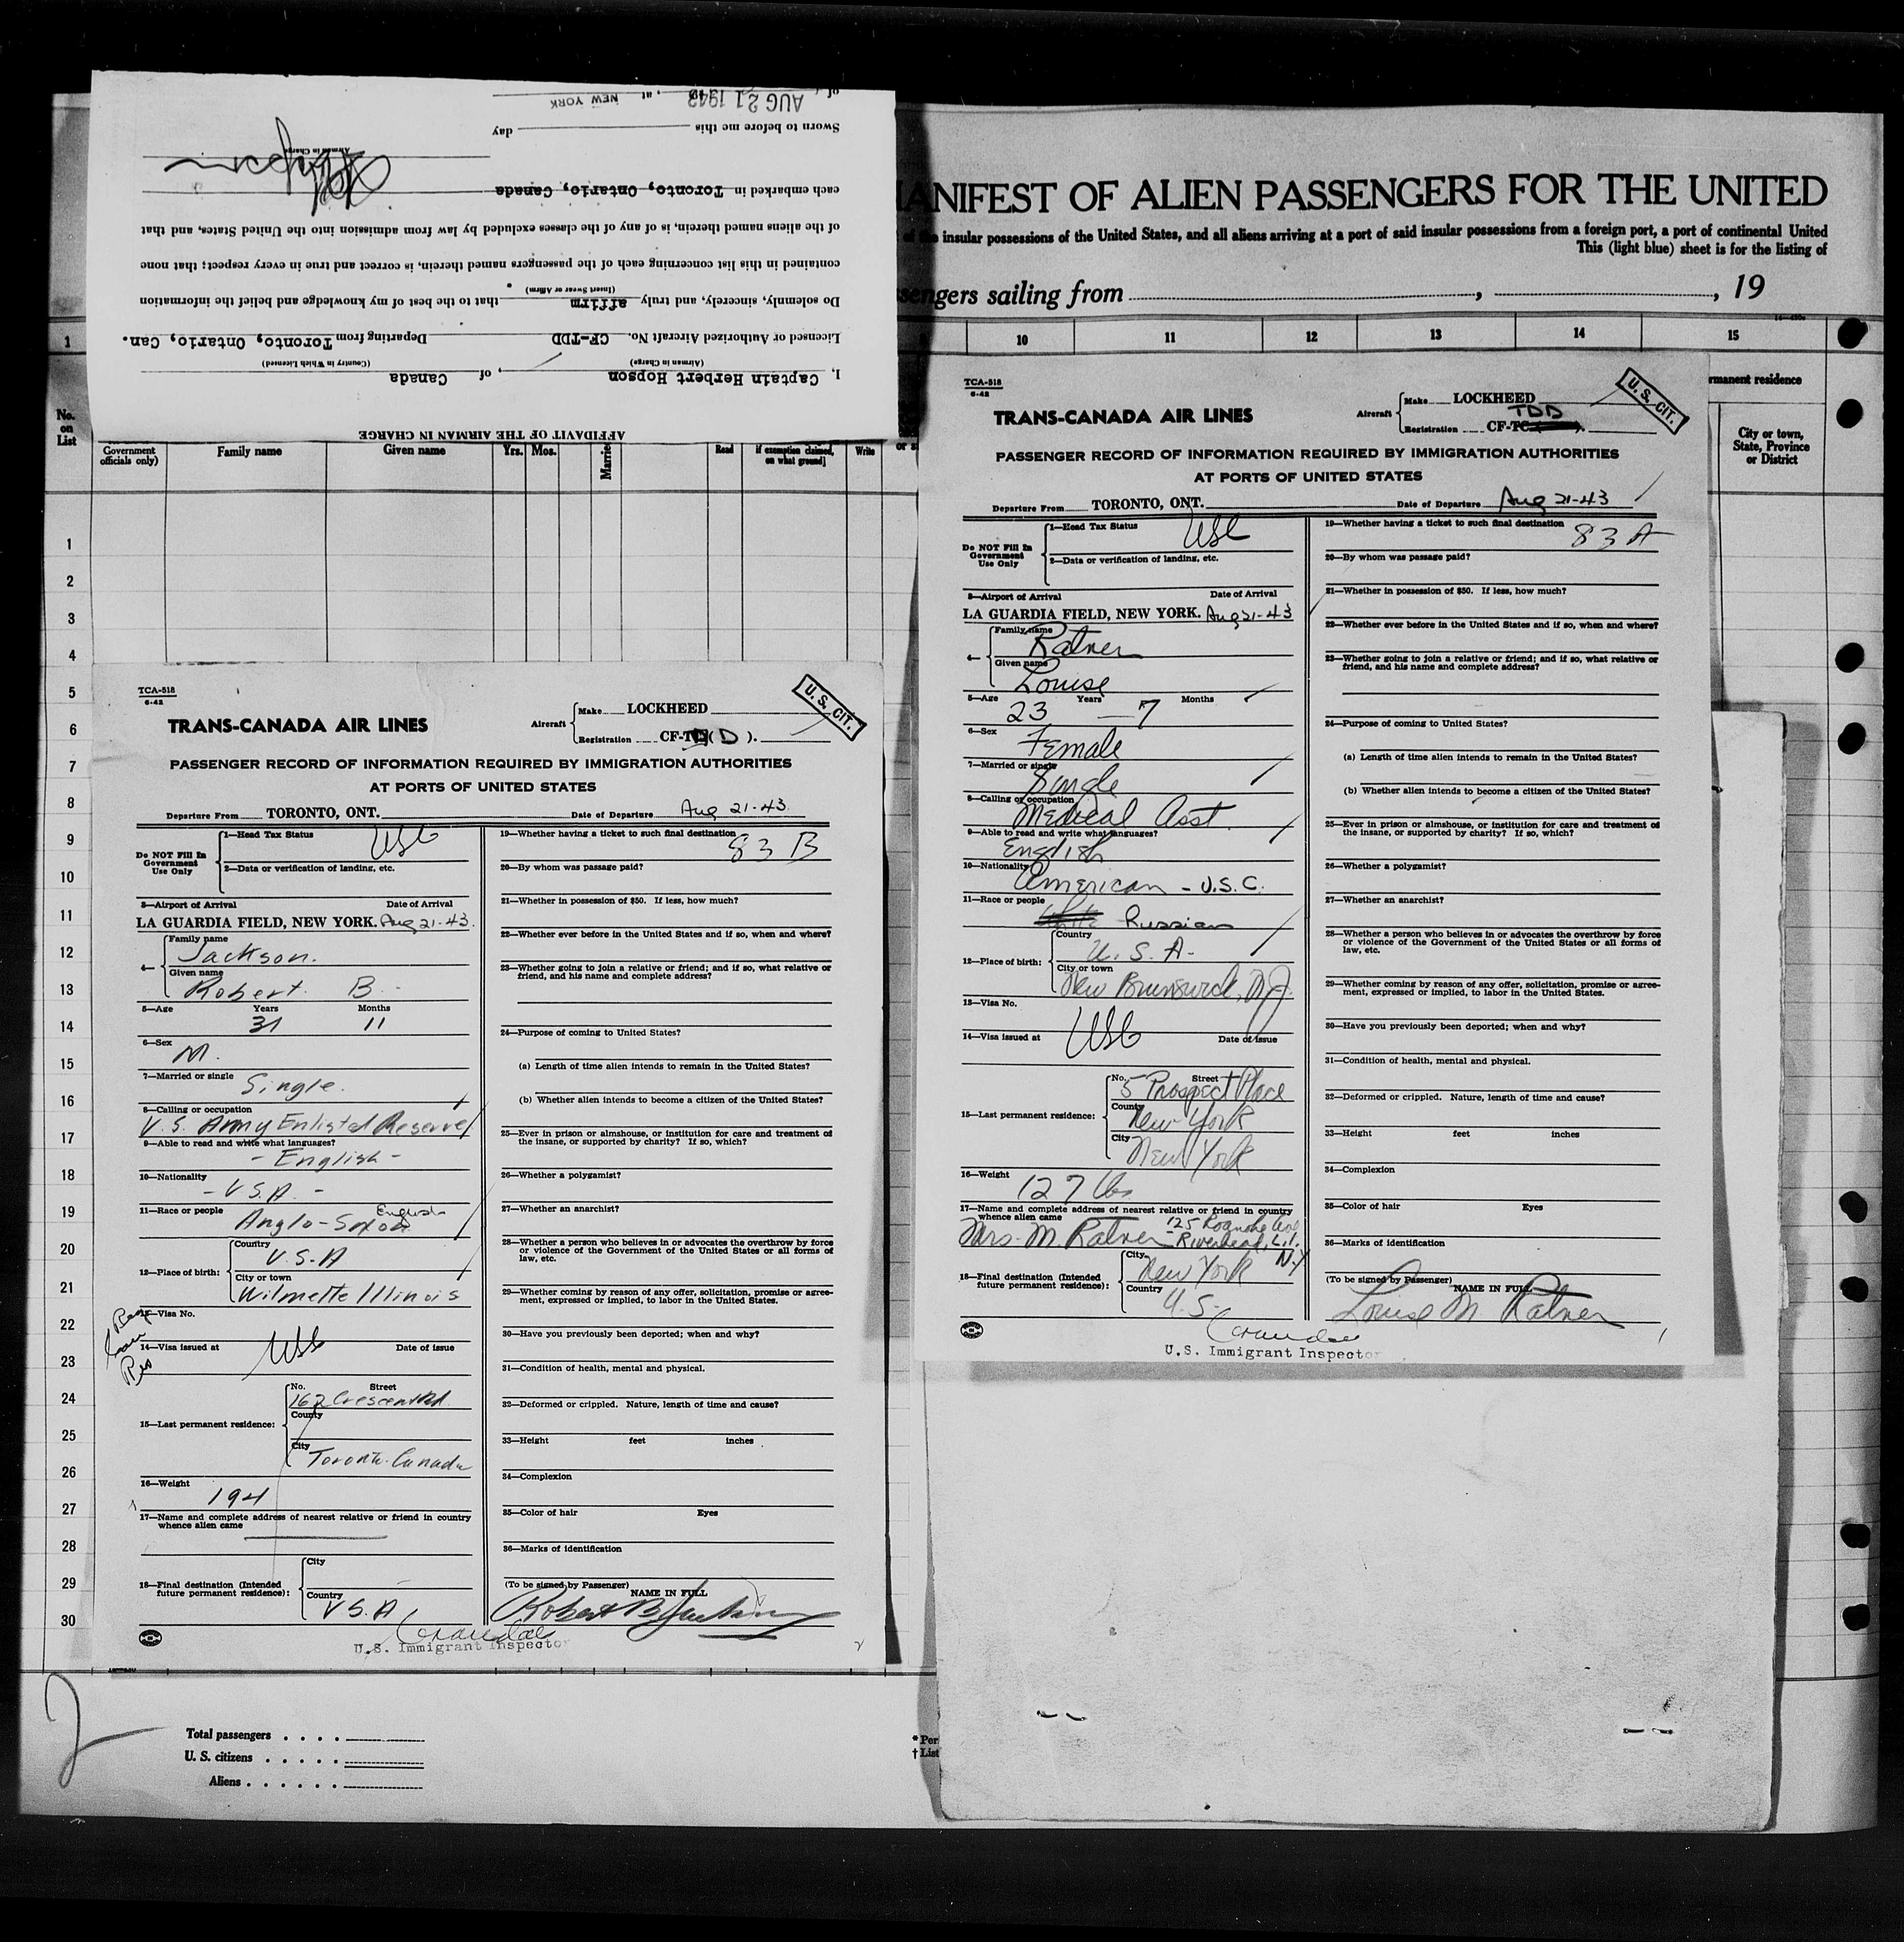 AFFIDAVIT OF THE AIRMAN IN CHARGE
I, Captain Herbert Hopson, of Canada
(Airman in Charge) (Country in Which Licensed)
Licensed or Authorized Aircraft No. CF-TDD Departing from Toronto, Ontario, Can.
Do solemnly, sincerely, and truly affirm that to the best of my knowledge and belief the information
(Insert Swear or Affirm)
contained in this list concerning each of the passengers named therein, is correct and true in every respect; that none
of the aliens named therein, is of any of the classes excluded by law from admission into the United States, and that
each embarked in Toronto, Ontario, Canada
Airman in Charge
Sworn to before me this day
of AUG 21 1943, at NEW YORK
MANIFEST OF ALIEN PASSENGERS FOR THE UNITED
of the insular possessions of the United States, and all aliens arriving at a port of said insular possessions from a foreign port, a port of continental United
This (light blue) sheet is for the listing of
sengers sailing from , , 19
1 10 11 12 13 14 15
rmanent residence
No. on List
Government officials only) Family name Given name Yrs. Mos. Married Read if exemption claimed, on what ground] Write
City or town, State, Province or District
1
2
3
4
5
6
7
8
9
10
11
12
13
14
15
16
17
18
19
20
21
22
23
24
25
26
27
28
29
30
TCA-518
6-42
U. S. CIT.
TRANS-CANADA AIR LINES
Aircraft Make LOCKHEED
Registration CF-T (D).
PASSENGER RECORD OF INFORMATION REQUIRED BY IMMIGRATION AUTHORITIES
AT PORTS OF UNITED STATES
Departure From TORONTO, ONT. Date of Departure Aug 21-43
Do NOT Fill In Government Use Only
1—Head Tax Status USC
2—Data or verification of landing, etc.
3—Airport of Arrival Date of Arrival
LA GUARDIA FIELD, NEW YORK. Aug 21-43.
4— Family name Jackson.
Given name Robert B.
5—Age Years 31 Months 11
6—Sex M.
7—Married or single Single.
8—Calling or occupation
U.S. Army Enlisted Reserve
9—Able to read and write what languages?
- English -
10—Nationality
- U S.A. -
11—Race or people English
Anglo-Saxon
12—Place of birth: Country U.S.A
City or town
Wilmette Illinois
13—Visa No.
14—Visa issued at USC Date of issue
15—Last permanent residence: No. Street
162 Crescent Rd.
County
City Toronto-Canada
16—Weight
194
17—Name and complete address of nearest relative or friend in country
whence alien came
18—Final destination (Intended future permanent residence): City
Country
U S.A.
19—Whether having a ticket to such final destination 83 B
20—By whom was passage paid?
21—Whether in possession of $50. If less, how much?
22—Whether ever before in the United States and if so, when and where?
23—Whether going to join a relative or friend; and if so, what relative or
friend, and his name and complete address?
24—Purpose of coming to United States?
(a) Length of time alien intends to remain in the United States?
(b) Whether alien intends to become a citizen of the United States?
25—Ever in prison or almshouse, or institution for care and treatment of
the insane, or supported by charity? If so, which?
26—Whether a polygamist?
27—Whether an anarchist?
28—Whether a person who believes in or advocates the overthrow by force
or violence of the Government of the United States or all forms of
law, etc.
29—Whether coming by reason of any offer, solicitation, promise or agree-
ment, expressed or implied, to labor in the United States.
30—Have you previously been deported; when and why?
31—Condition of health, mental and physical.
32—Deformed or crippled. Nature, length of time and cause?
33—Height feet inches
34—Complexion
35—Color of hair Eyes
36—Marks of identification
(To be signed by Passenger) NAME IN FULL
Robert B Jackson
U.S. Immigrant Inspector
TCA-518
6-42
U. S. CIT.
TRANS-CANADA AIR LINES
Aircraft Make LOCKHEED
Registration CF-TC TDD
PASSENGER RECORD OF INFORMATION REQUIRED BY IMMIGRATION AUTHORITIES
AT PORTS OF UNITED STATES
Departure From TORONTO, ONT. Date of Departure Aug 21-43
Do NOT Fill In Government Use Only
1—Head Tax Status USC
2—Data or verification of landing, etc.
3—Airport of Arrival Date of Arrival
LA GUARDIA FIELD, NEW YORK. Aug 21-43
4— Family name Ratner
Given name Louise
5—Age 23 Years — 7 Months
6—Sex Female
7—Married or single Single
8—Calling or occupation Medical Asst.
9—Able to read and write what languages?
English
10—Nationality American - U.S.C.
11—Race or people
White Russian
12—Place of birth: Country U.S.A-
City or town
New Brunswick, N.J.
13—Visa No.
14—Visa issued at USC Date of issue
15—Last permanent residence: No. Street
5 Prospect Place
County New York
City New York
16—Weight 127 lbs
17—Name and complete address of nearest relative or friend in country
whence alien came
Mrs. M. Ratner - 125 Roanoke Ave
Riverhead, L.I. N.Y
18—Final destination (Intended future permanent residence): City New York
Country U.S.
19—Whether having a ticket to such final destination 83 A
20—By whom was passage paid?
21—Whether in possession of $50. If less, how much?
22—Whether ever before in the United States and if so, when and where?
23—Whether going to join a relative or friend; and if so, what relative or
friend, and his name and complete address?
24—Purpose of coming to United States?
(a) Length of time alien intends to remain in the United States?
(b) Whether alien intends to become a citizen of the United States?
25—Ever in prison or almshouse, or institution for care and treatment of
the insane, or supported by charity? If so, which?
26—Whether a polygamist?
27—Whether an anarchist?
28—Whether a person who believes in or advocates the overthrow by force
or violence of the Government of the United States or all forms of
law, etc.
29—Whether coming by reason of any offer, solicitation, promise or agree-
ment, expressed or implied, to labor in the United States.
30—Have you previously been deported; when and why?
31—Condition of health, mental and physical.
32—Deformed or crippled. Nature, length of time and cause?
33—Height feet inches
34—Complexion
35—Color of hair Eyes
36—Marks of identification
(To be signed by Passenger) NAME IN FULL
Louise M Ratner
U.S. Immigrant Inspector
2
Total passengers
U. S. citizens
Aliens
* Per
† List